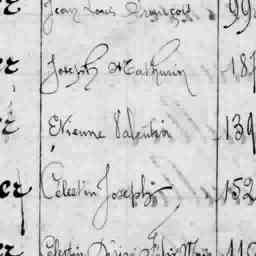 er Jean Louis François 99
er Joseph Mathurin 187
er Etienne Valentin 139
er Célestin Joseph 152
er Célestin Désiré 110